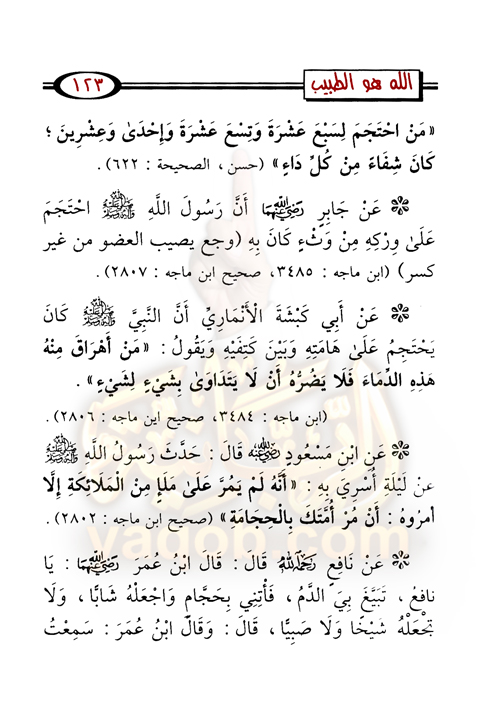 الله هو الطبيب
١٢٣
« مَنْ احْتَجَمَ لِسَبْعَ عَشْرَةَ وَتِسْعَ عَشْرَةَ وَإِحْدَىٰ وَعِشْرِينَ ؛
كَانَ شِفَاءً مِنْ كُلِّ دَاءٍ » (حسن ، الصحيحة : ٦٢٢) .
❋ عَنْ جَابِرٍ رَضِيَ اللَّهُ عَنْهُمَا أَنَّ رَسُولَ اللَّهِ ﷺ احْتَجَمَ
عَلَىٰ وِرْكِهِ مِنْ وَثْءٍ كَانَ بِهِ (وجع يصيب العضو من غير
كسر) (ابن ماجه : ٣٤٨٥، صحيح ابن ماجه : ٢٨٠٧) .
❋ عَنْ أَبِي كَبْشَةَ الْأَنْمَارِيِّ أَنَّ النَّبِيَّ ﷺ كَانَ
يَحْتَجِمُ عَلَىٰ هَامَتِهِ وَبَيْنَ كَتِفَيْهِ وَيَقُولُ : « مَنْ أَهْرَاقَ مِنْهُ
هَذِهِ الدِّمَاءَ فَلَا يَضُرُّهُ أَنْ لَا يَتَدَاوَىٰ بِشَيْءٍ لِشَيْءٍ » .
(ابن ماجه : ٣٤٨٤، صحيح ابن ماجه : ٢٨٠٦) .
❋ عَنِ ابْنِ مَسْعُودٍ رَضِيَ اللَّهُ عَنْهُ قَالَ : حَدَّثَ رَسُولُ اللَّهِ ﷺ
عَنْ لَيْلَةِ أُسْرِيَ بِهِ : « أَنَّهُ لَمْ يَمُرَّ عَلَىٰ مَلَإٍ مِنَ الْمَلَائِكَةِ إِلَّا
أمروهُ : أَنْ مُرْ أُمَّتَكَ بِالْحِجَامَةِ » (صحيح ابن ماجه : ٢٨٠٢) .
❋ عَنْ نَافِعٍ رَحِمَهُ اللَّهُ قَالَ : قَالَ ابْنُ عُمَرَ رَضِيَ اللَّهُ عَنْهُمَا : يَا
نافعُ ، تَبَيَّغَ بِيَ الدَّمُ ، فَأْتِنِي بِحَجَّامٍ وَاجْعَلْهُ شَابًّا ، وَلَا
تَجْعَلْهُ شَيْخًا وَلَا صَبِيًّا ، قَالَ : وَقَالَ ابْنُ عُمَرَ : سَمِعْتُ
yaqob.com